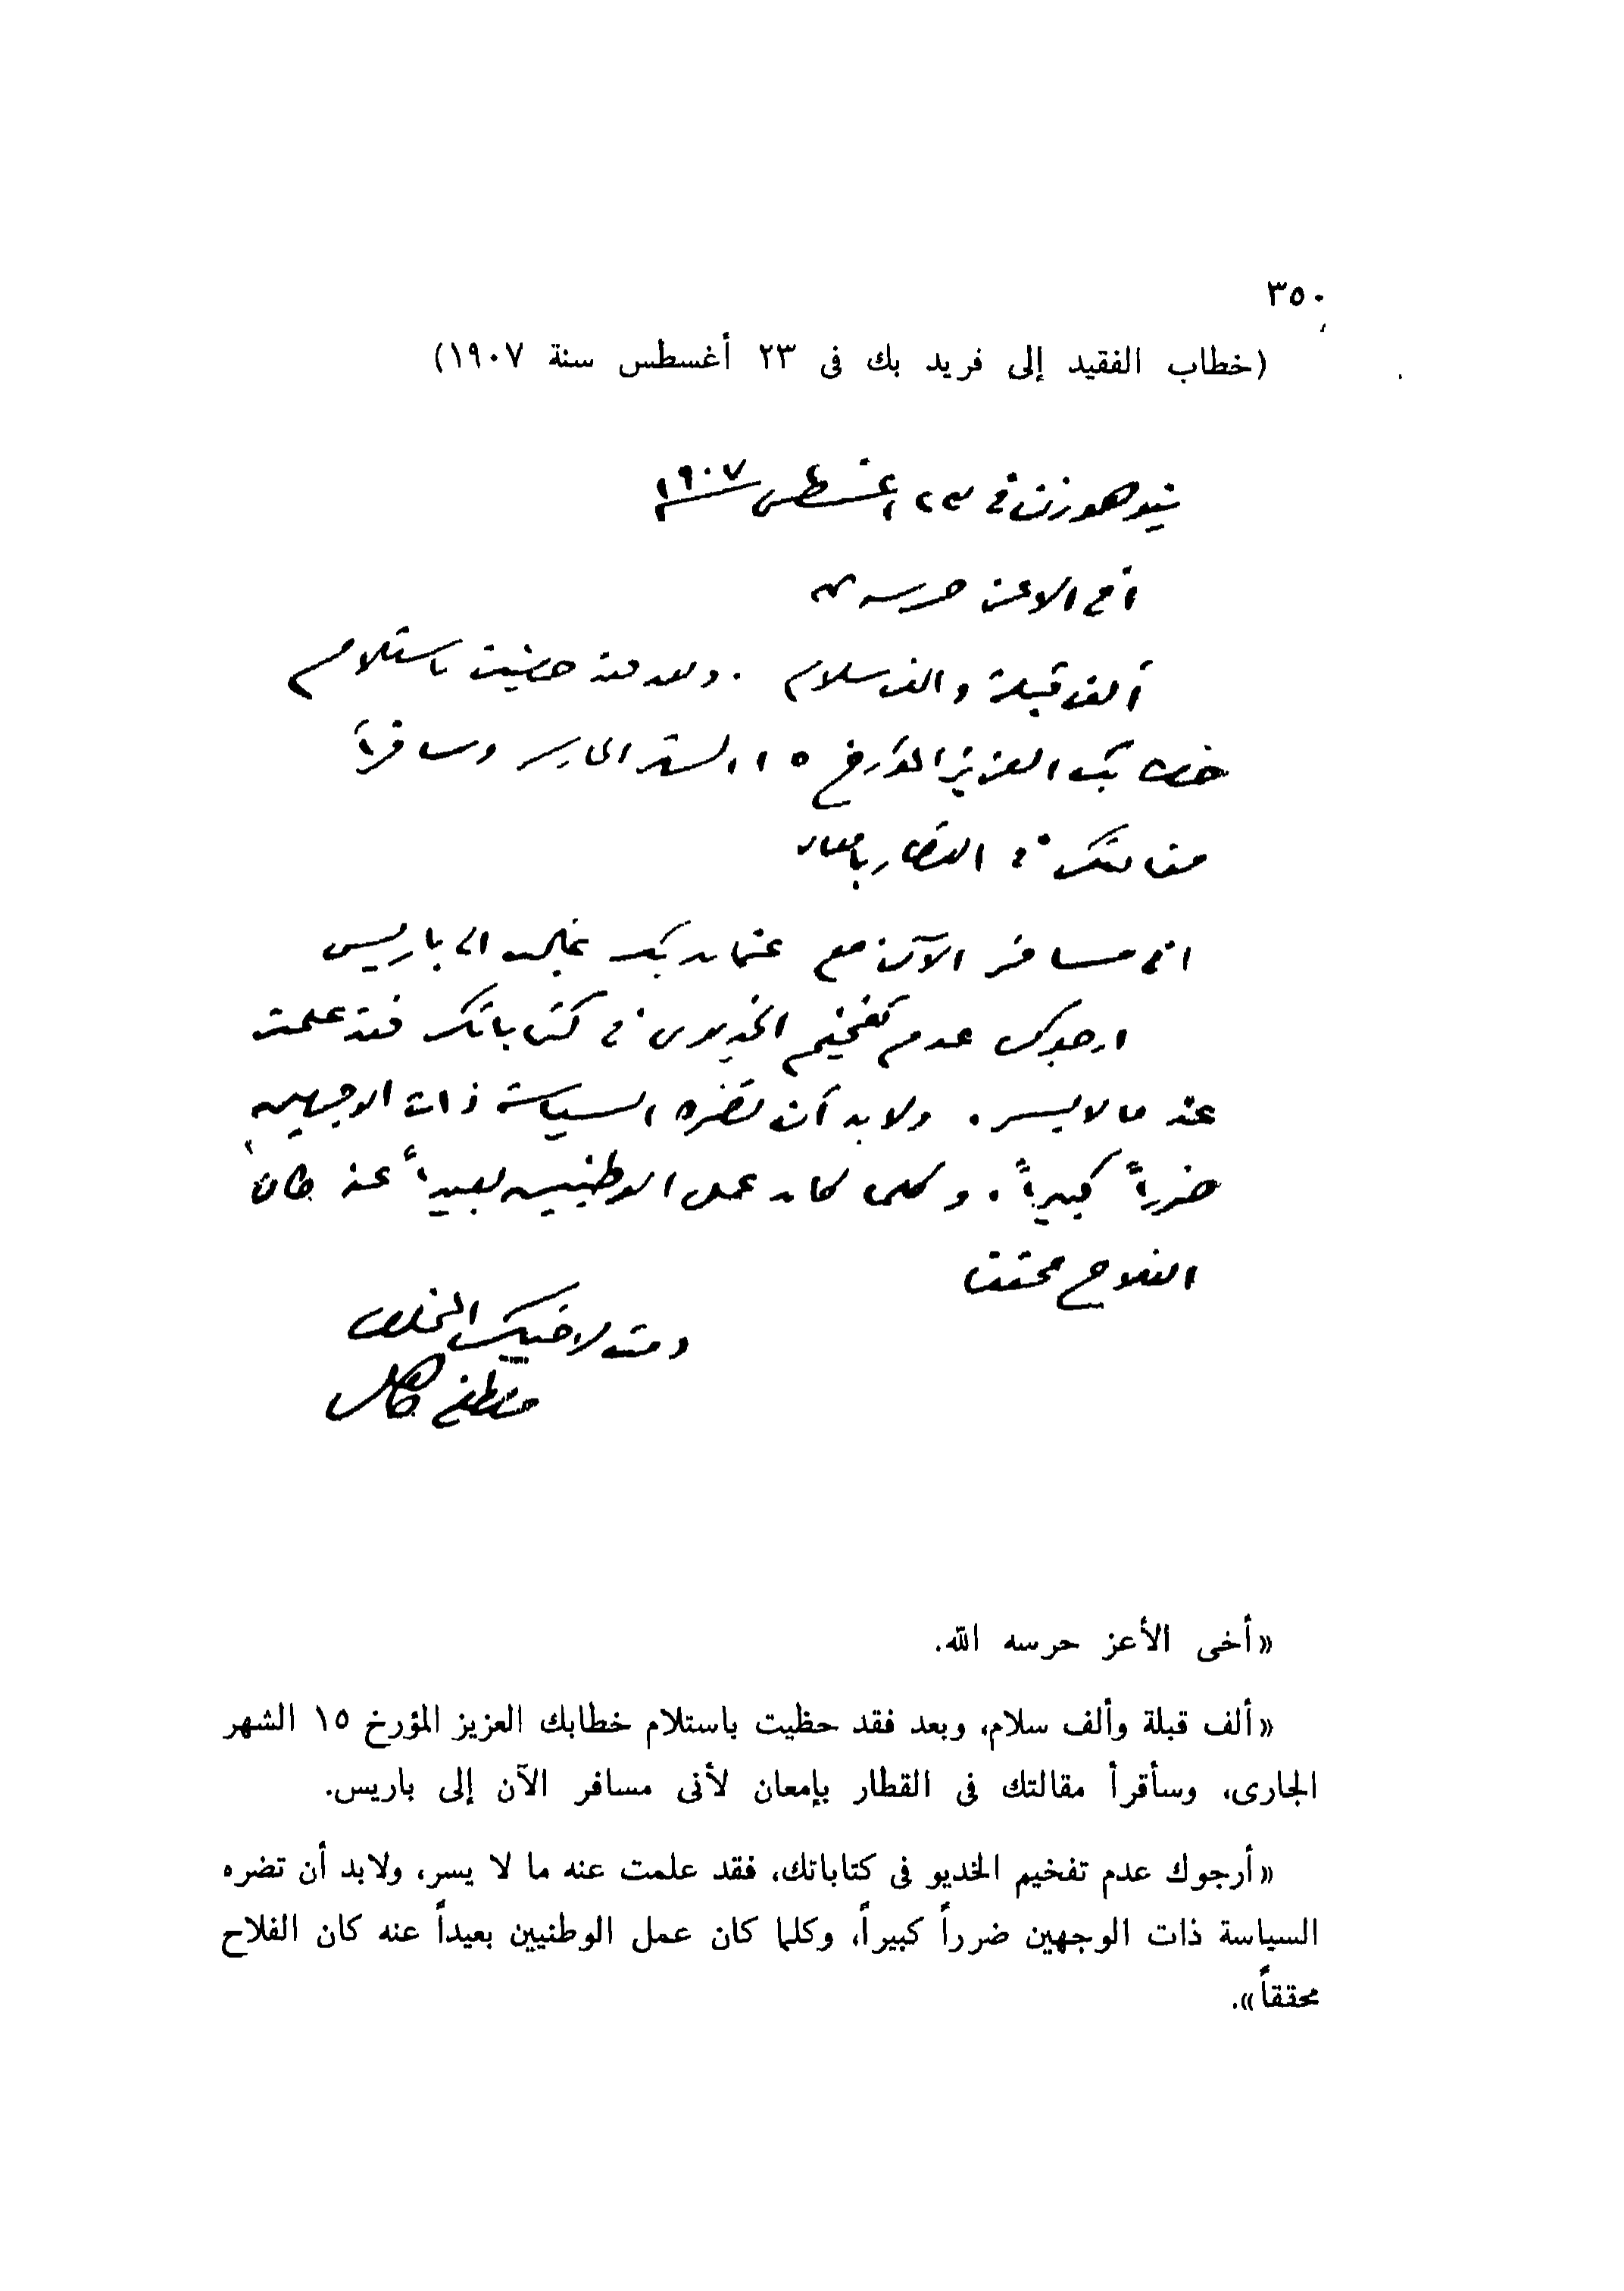 ٣٥٠
(خطاب الفقيد إلى فريد بك فى ٢٣ أغسطس سنة ١٩٠٧)
فى ٢٣ اغسطس ١٩٠٧
اخى الاعز حرسه الله
ألف قبلة والف سلام . وبعد فقد حظيت باستلام
خطابك العزيز المؤرخ ١٥ الشهر الجارى وسأقرأ
مقالتك فى القطار بامعان
انى مسافر الآن مع عثمان بك غالب الى باريس
ارجوك عدم تفخيم الخديوى فى كتاباتك فقد علمت
عنه ما لا يسر . ولا بد أن تضره السياسة ذات الوجهين
ضرراً كبيراً . وكلما كان عمل الوطنيين بعيداً عنه كان
الفلاح محققا
ودمت لاخيك المخلص
مصطفى كامل
«أخى الأعز حرسه الله.
«ألف قبلة وألف سلام، وبعد فقد حظيت باستلام خطابك العزيز المؤرخ ١٥ الشهر
الجارى، وسأقرأ مقالتك فى القطار بإمعان لأنى مسافر الآن إلى باريس.
«أرجوك عدم تفخيم الخديو فى كتاباتك، فقد علمت عنه ما لا يسر، ولابد أن تضره
السياسة ذات الوجهين ضرراً كبيراً، وكلما كان عمل الوطنيين بعيداً عنه كان الفلاح
محققاً».